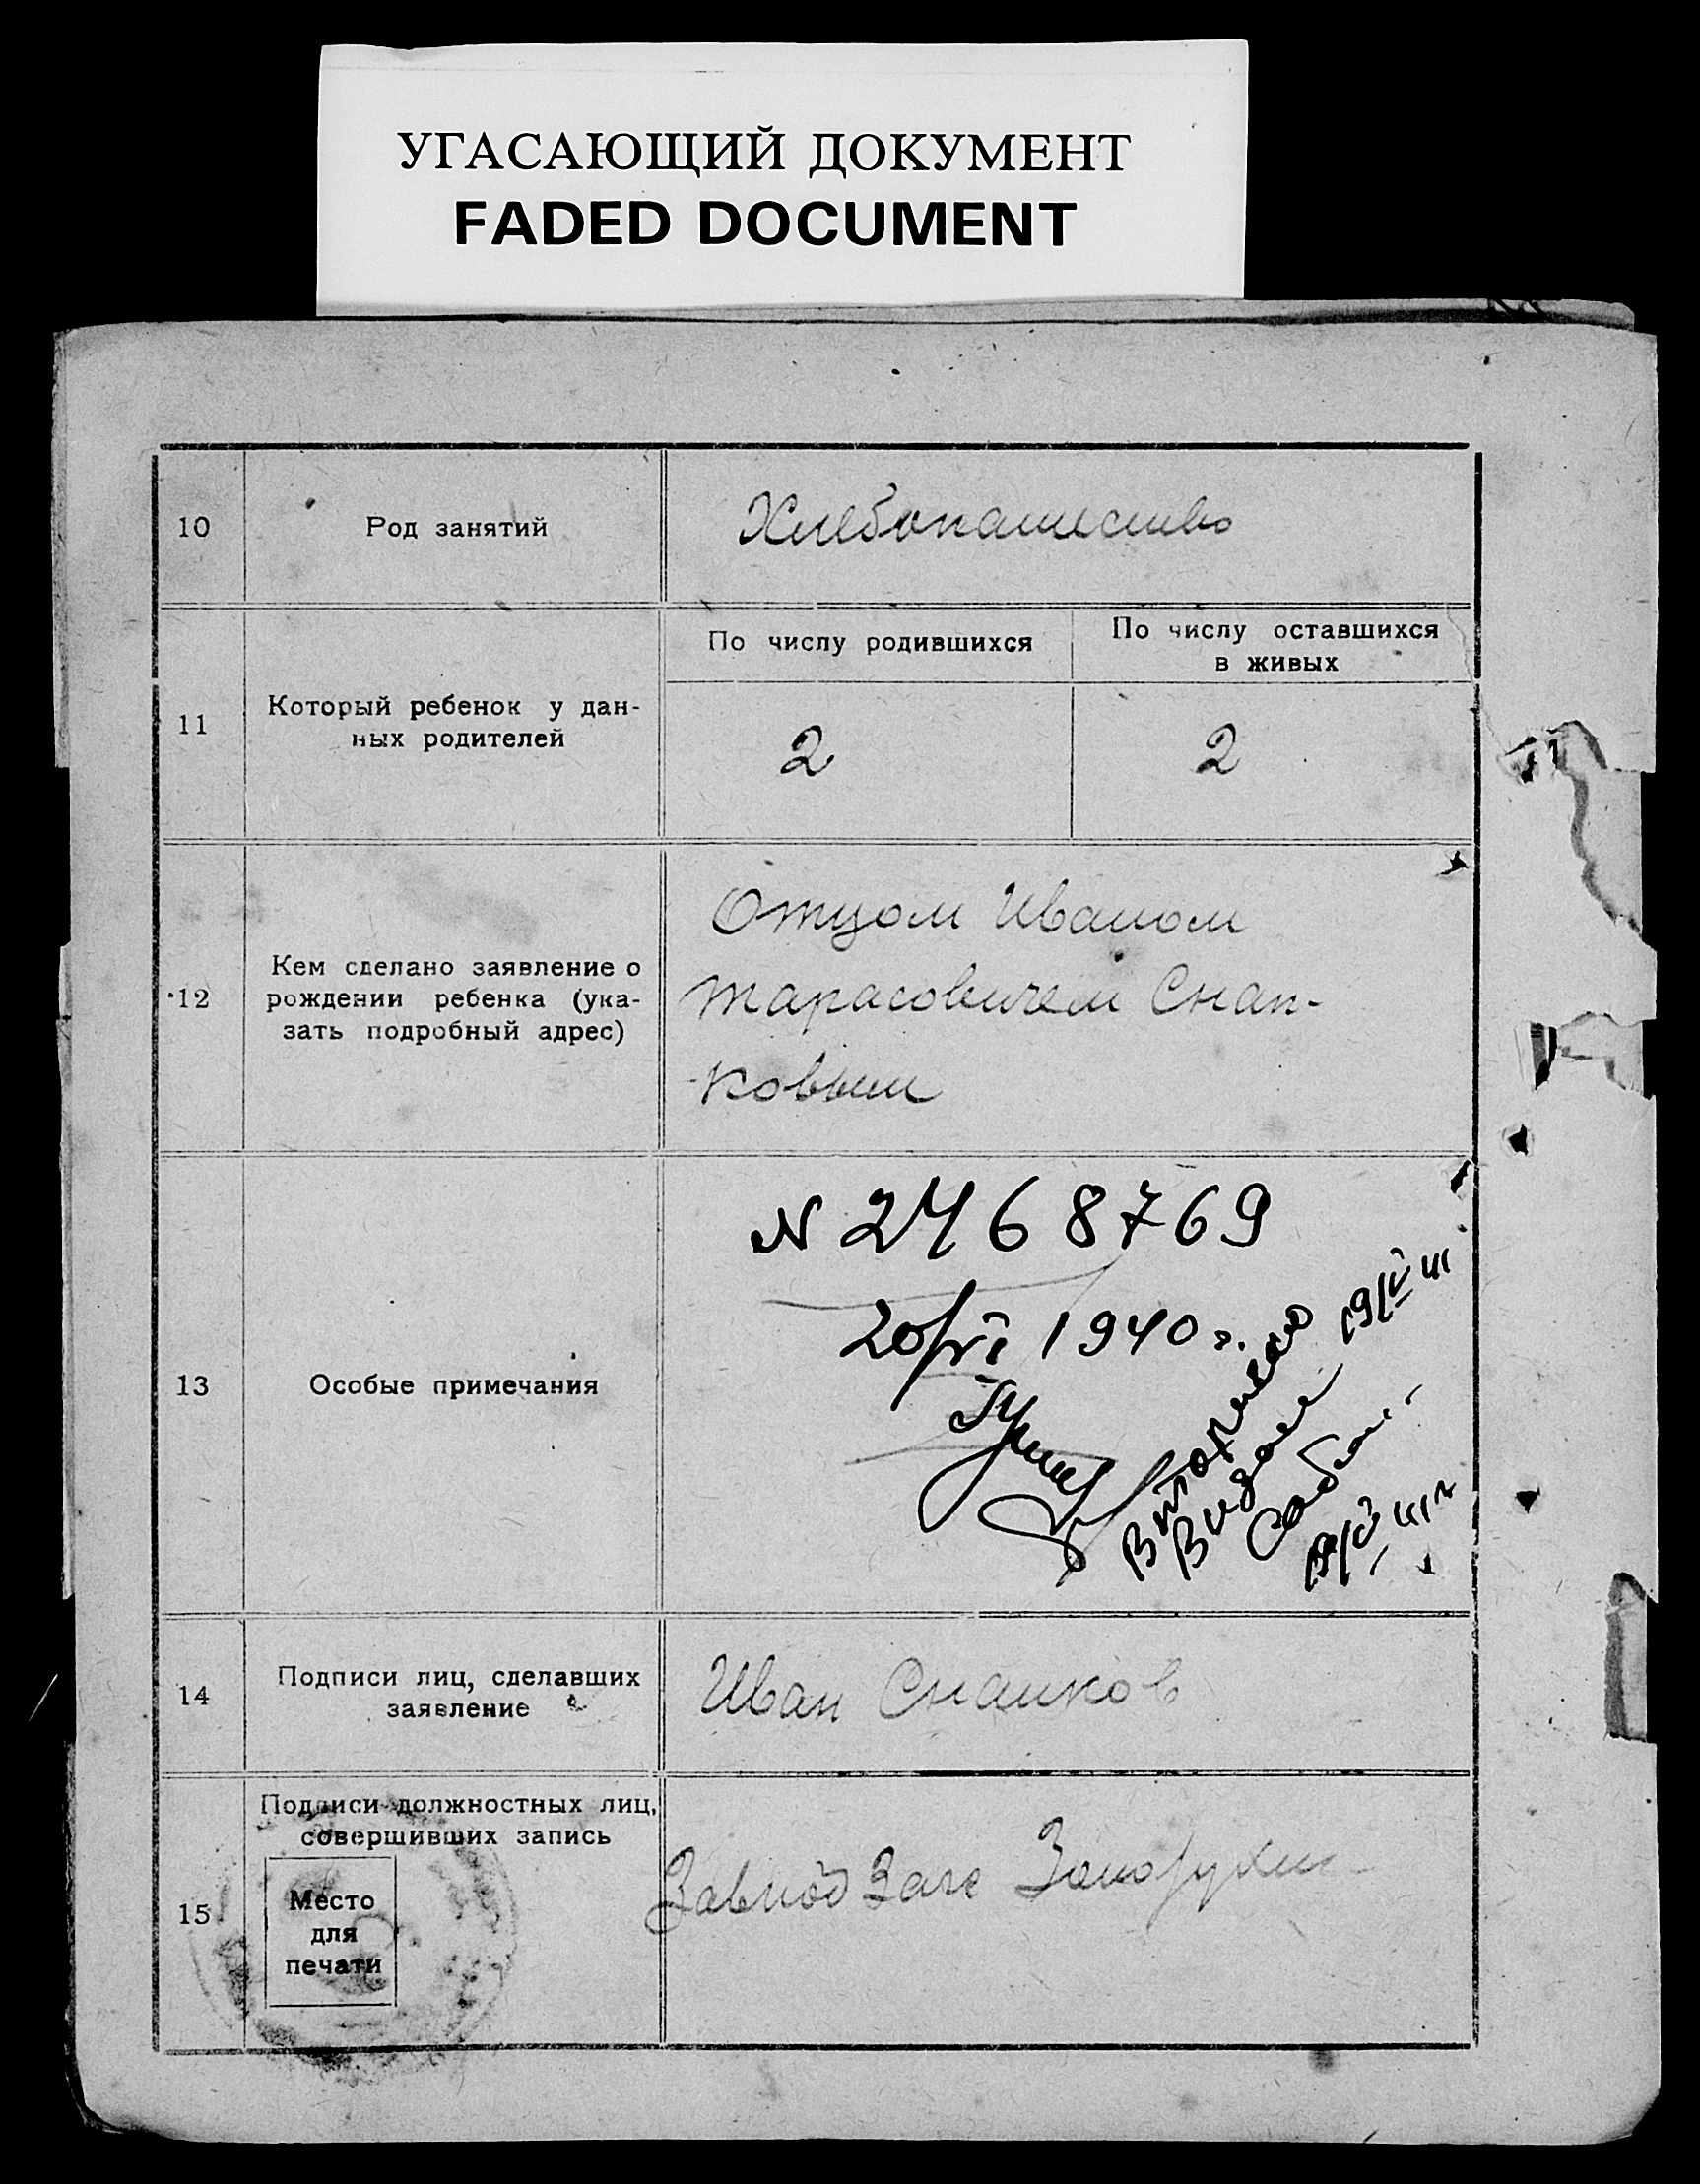 УГАСАЮЩИЙ ДОКУМЕНТ
FADED DOCUMENT
10
Род занятий
Хлебопашество
11
Который ребенок у дан-
ных родителей
По числу родившихся
По числу оставшихся
в живых
2
2
12
Кем сделано заявление о
рождении ребенка (ука-
зать подробный адрес)
Отцом Иваном
Тарасовичем Снап-
ковым
13
Особые примечания
N 2468769
20/VI 1940 г.
Вторично
Выдан
14
Подписи лиц, сделавших
заявление
Иван Снапков
15
Подписи должностных лиц,
совершивших запись
Место
для
печати